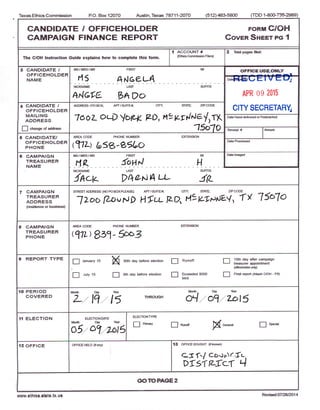 Texas Ethics Commission P.O. Box 12070 Austin, Texas 78711-2070 (512) 463-5800 (TDD 1-800-735-2989)
CANDIDATE / OFFICEHOLDER CAMPAIGN FINANCE REPORT
FORM C/OH
COVER SHEET PG 1
The C/OH Instruction Guide explains how to complete this form.
1 ACCOUNT # (Ethics Commission Filers)
2 Total pages filed:
3 CANDIDATE / OFFICEHOLDER NAME
MS / MRS / MR FIRST MI
MS ANGELA
NICKNAME LAST SUFFIX
ANGIE BADO
OFFICE USE ONLY
RECEIVED
APR 09 2015
CITY SECRETARY
4 CANDIDATE / OFFICEHOLDER MAILING ADDRESS
change of address
ADDRESS / PO BOX; APT / SUITE #; CITY; STATE; ZIP CODE
7002 OLD YORK RD, McKINNEY, TX
75070
Date Hand-delivered or Postmarked
Receipt # Amount
5 CANDIDATE/ OFFICEHOLDER PHONE
AREA CODE PHONE NUMBER EXTENSION
(972) 658-8560
Date Processed
6 CAMPAIGN TREASURER NAME
MS / MRS / MR FIRST MI
MR JOHN H
Date Imaged
NICKNAME LAST SUFFIX
JACK DARNALL JR
7 CAMPAIGN TREASURER ADDRESS
(residence or business)
STREET ADDRESS (NO PO BOX PLEASE); APT / SUITE #; CITY; STATE; ZIP CODE
7200 ROUND HILL RD, McKINNEY, TX 75070
8 CAMPAIGN TREASURER PHONE
AREA CODE PHONE NUMBER EXTENSION
(972) 839-5003
9 REPORT TYPE
January 15 30th day before election Runoff 15th day after campaign treasurer appointment (officeholder only)
July 15 8th day before election Exceeded $500 limit Final report (Attach C/OH - FR)
10 PERIOD COVERED
Month Day Year Month Day Year
2/19/15 THROUGH 04/09/2015
11 ELECTION
ELECTION DATE
Month Day Year
05/09/2015
ELECTION TYPE
Primary Runoff General Special
12 OFFICE
OFFICE HELD (if any)
13 OFFICE SOUGHT (if known)
CITY COUNCIL
DISTRICT 4
GO TO PAGE 2
www.ethics.state.tx.us Revised 07/28/2014